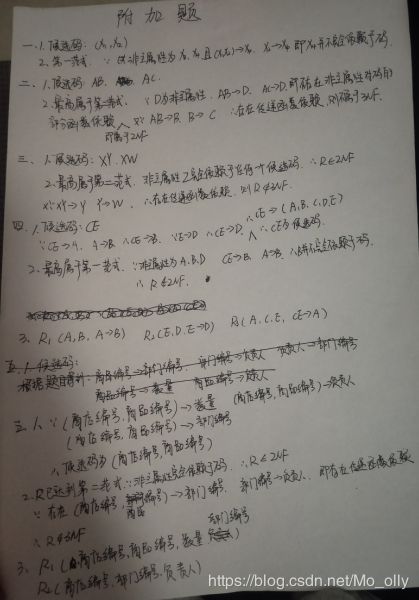 附加题
一、1.候选码:(X₁,X₂)
2.第一范式. ∵ 非主属性为X₃,X₄且(X₁,X₂)→X₃, X₂→X₄ 即X₄并不完全依赖于码.
二、1.候选码:AB. AC.
2.最高属于第一范式. ∵D为非主属性. AB→D. AC→D,即存在非主属性对码的
部分函数依赖 又∵ AB→B B→C ∴存在传递函数依赖,则不属于3NF.
即属于2NF
三、1.候选码:XY. XW
2.最高属于第二范式. 非主属性Z完全依赖于任何一个候选码. ∴R∈2NF
又∵XY→Y Y→W. ∴存在传递函数依赖. 则R∉3NF.
四、1.候选码:CE ∴CE→(A,B,C,D,E)
∵CE→A. A→B ∴CE→B. ∵E→D ∴CE→D. ∴CE为候选码.
2.最高属于第一范式. ∵非主属性为A.B.D CE→B. A→B ∴B并不完全依赖于码.
∴R∉2NF.
3. R₁(A,B, A→B) R₂(E,D,E→D) R₃(A,C,E, CE→A)
五、1.候选码:
根据题目得到:商店编号→部门编号. 部门编号→负责人 负责人→部门编号
商品编号→数量 商品编号→负责人
三、1、∵(商店编号,商品编号)→数量 (商店编号,商品编号)→负责人
(商店编号,商品编号)→部门编号
∴候选码为(商店编号,商品编号)
2.R已达到第二范式∵非主属性完全依赖于码. ∴R∈2NF
∵存在(商店编号,商品编号)→部门编号. 部门编号→负责人. 即存在传递函数依赖
∴R∉3NF
3、R₁(商店编号,商品编号,数量 部门编号)
R₂(商店编号,部门编号,负责人)
https://blog.csdn.net/Mo_olly